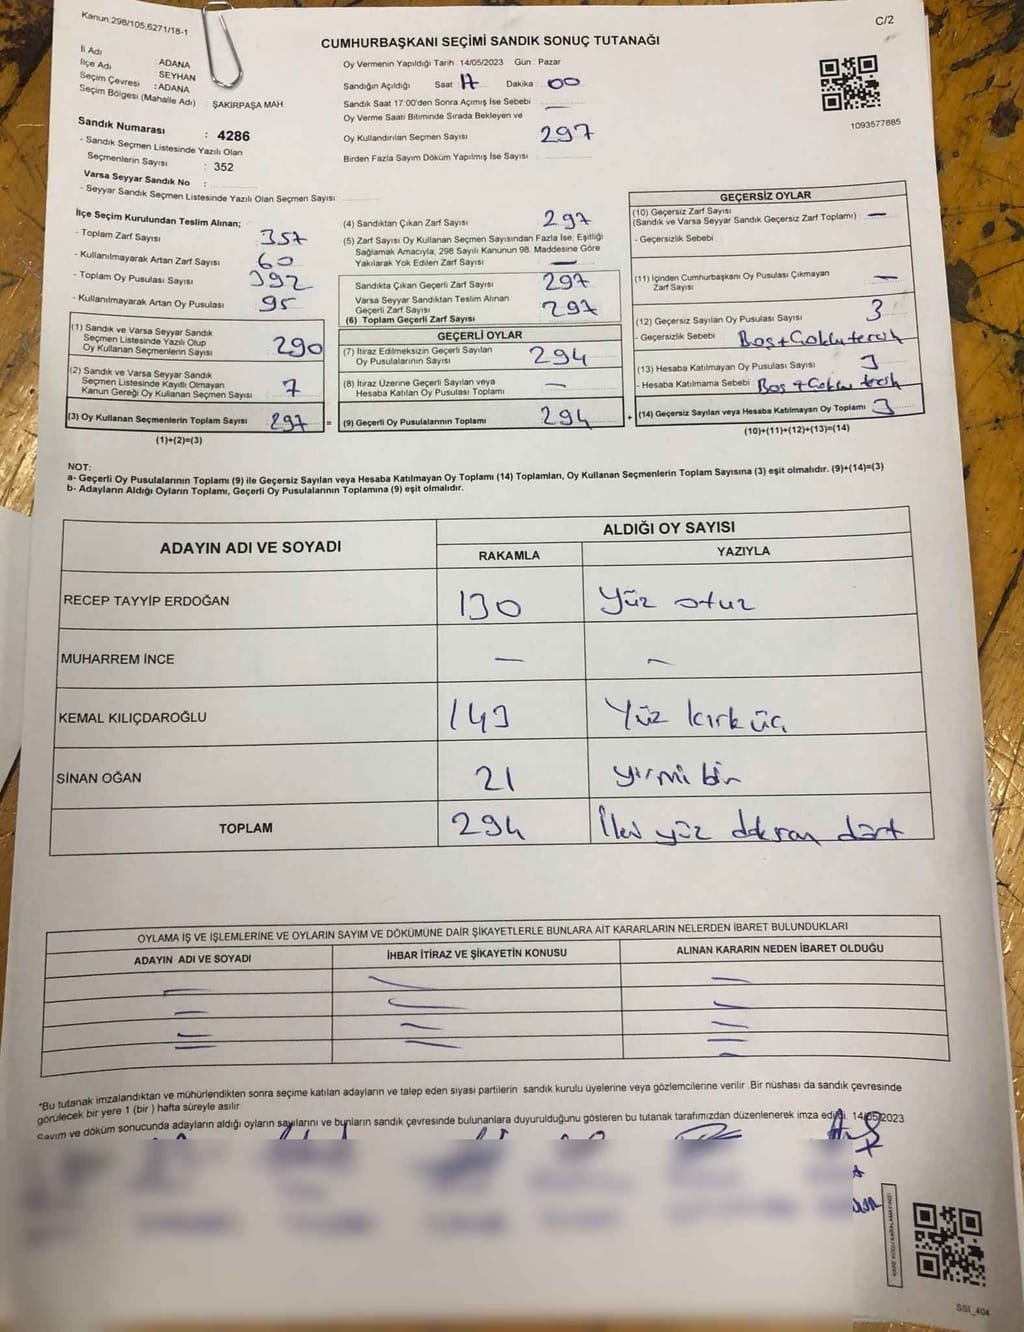 Kanun 298/105,6271/18-1
C/2
CUMHURBAŞKANI SEÇİMİ SANDIK SONUÇ TUTANAĞI
İl Adı : ADANA
İlçe Adı : SEYHAN
Seçim Çevresi : ADANA
Seçim Bölgesi (Mahalle Adı) : ŞAKİRPAŞA MAH
Sandık Numarası : 4286
- Sandık Seçmen Listesinde Yazılı Olan
Seçmenlerin Sayısı : 352
Varsa Seyyar Sandık No :
- Seyyar Sandık Seçmen Listesinde Yazılı Olan Seçmen Sayısı:
Oy Vermenin Yapıldığı Tarih : 14/05/2023 Gün : Pazar
Sandığın Açıldığı Saat 17 Dakika : 00
Sandık Saat 17:00'den Sonra Açımış İse Sebebi : —
Oy Verme Saati Bitiminde Sırada Bekleyen ve
Oy Kullandırılan Seçmen Sayısı 297
Birden Fazla Sayım Döküm Yapılmış İse Sayısı :
1093577885
İlçe Seçim Kurulundan Teslim Alınan;
- Toplam Zarf Sayısı : 357
- Kullanılmayarak Artan Zarf Sayısı : 60
- Toplam Oy Pusulası Sayısı : 392
- Kullanılmayarak Artan Oy Pusulası : 95
(1) Sandık ve Varsa Seyyar Sandık
Seçmen Listesinde Yazılı Olup
Oy Kullanan Seçmenlerin Sayısı : 290
(2) Sandık ve Varsa Seyyar Sandık
Seçmen Listesinde Kayıtlı Olmayan
Kanun Gereği Oy Kullanan Seçmen Sayısı : 7
(3) Oy Kullanan Seçmenlerin Toplam Sayısı : 297 =
(1)+(2)=(3)
(4) Sandıktan Çıkan Zarf Sayısı : 297
(5) Zarf Sayısı Oy Kullanan Seçmen Sayısından Fazla İse, Eşitliği
Sağlamak Amacıyla, 298 Sayılı Kanunun 98. Maddesine Göre
Yakılarak Yok Edilen Zarf Sayısı : —
Sandıkta Çıkan Geçerli Zarf Sayısı : 297
Varsa Seyyar Sandıktan Teslim Alınan
Geçerli Zarf Sayısı : 297
(6) Toplam Geçerli Zarf Sayısı
GEÇERLİ OYLAR
(7) İtiraz Edilmeksizin Geçerli Sayılan
Oy Pusulalarının Sayısı : 294
(8) İtiraz Üzerine Geçerli Sayılan veya
Hesaba Katılan Oy Pusulası Toplamı : —
(9) Geçerli Oy Pusulalarının Toplamı : 294 +
GEÇERSİZ OYLAR
(10) Geçersiz Zarf Sayısı
(Sandık ve Varsa Seyyar Sandık Geçersiz Zarf Toplamı) : —
- Geçersizlik Sebebi :
(11) İçinden Cumhurbaşkanı Oy Pusulası Çıkmayan
Zarf Sayısı : —
(12) Geçersiz Sayılan Oy Pusulası Sayısı : 3
- Geçersizlik Sebebi : Boş + Çoklu tercih
(13) Hesaba Katılmayan Oy Pusulası Sayısı : 3
- Hesaba Katılmama Sebebi : Boş + Çoklu tercih
(14) Geçersiz Sayılan veya Hesaba Katılmayan Oy Toplamı : 3
(10)+(11)+(12)+(13)=(14)
NOT:
a- Geçerli Oy Pusulalarının Toplamı (9) ile Geçersiz Sayılan veya Hesaba Katılmayan Oy Toplamı (14) Toplamları, Oy Kullanan Seçmenlerin Toplam Sayısına (3) eşit olmalıdır. (9)+(14)=(3)
b- Adayların Aldığı Oyların Toplamı, Geçerli Oy Pusulalarının Toplamına (9) eşit olmalıdır.
ADAYIN ADI VE SOYADI
ALDIĞI OY SAYISI
RAKAMLA YAZIYLA
RECEP TAYYİP ERDOĞAN 130 Yüz otuz
MUHARREM İNCE — —
KEMAL KILIÇDAROĞLU 143 Yüz kırk üç
SİNAN OĞAN 21 yirmi bir
TOPLAM 294 İki yüz doksan dört
OYLAMA İŞ VE İŞLEMLERİNE VE OYLARIN SAYIM VE DÖKÜMÜNE DAİR ŞİKAYETLERLE BUNLARA AİT KARARLARIN NELERDEN İBARET BULUNDUKLARI
ADAYIN ADI VE SOYADI İHBAR İTİRAZ VE ŞİKAYETİN KONUSU ALINAN KARARIN NEDEN İBARET OLDUĞU
*Bu tutanak imzalandıktan ve mühürlendikten sonra seçime katılan adayların ve talep eden siyasi partilerin sandık kurulu üyelerine veya gözlemcilerine verilir .Bir nüshası da sandık çevresinde
görülecek bir yere 1 (bir ) hafta süreyle asılır
Sayım ve döküm sonucunda adayların aldığı oyların sayılarını ve bunların sandık çevresinde bulunanlara duyurulduğunu gösteren bu tutanak tarafımızdan düzenlenerek imza edildi. 14/05/2023
SSI_404